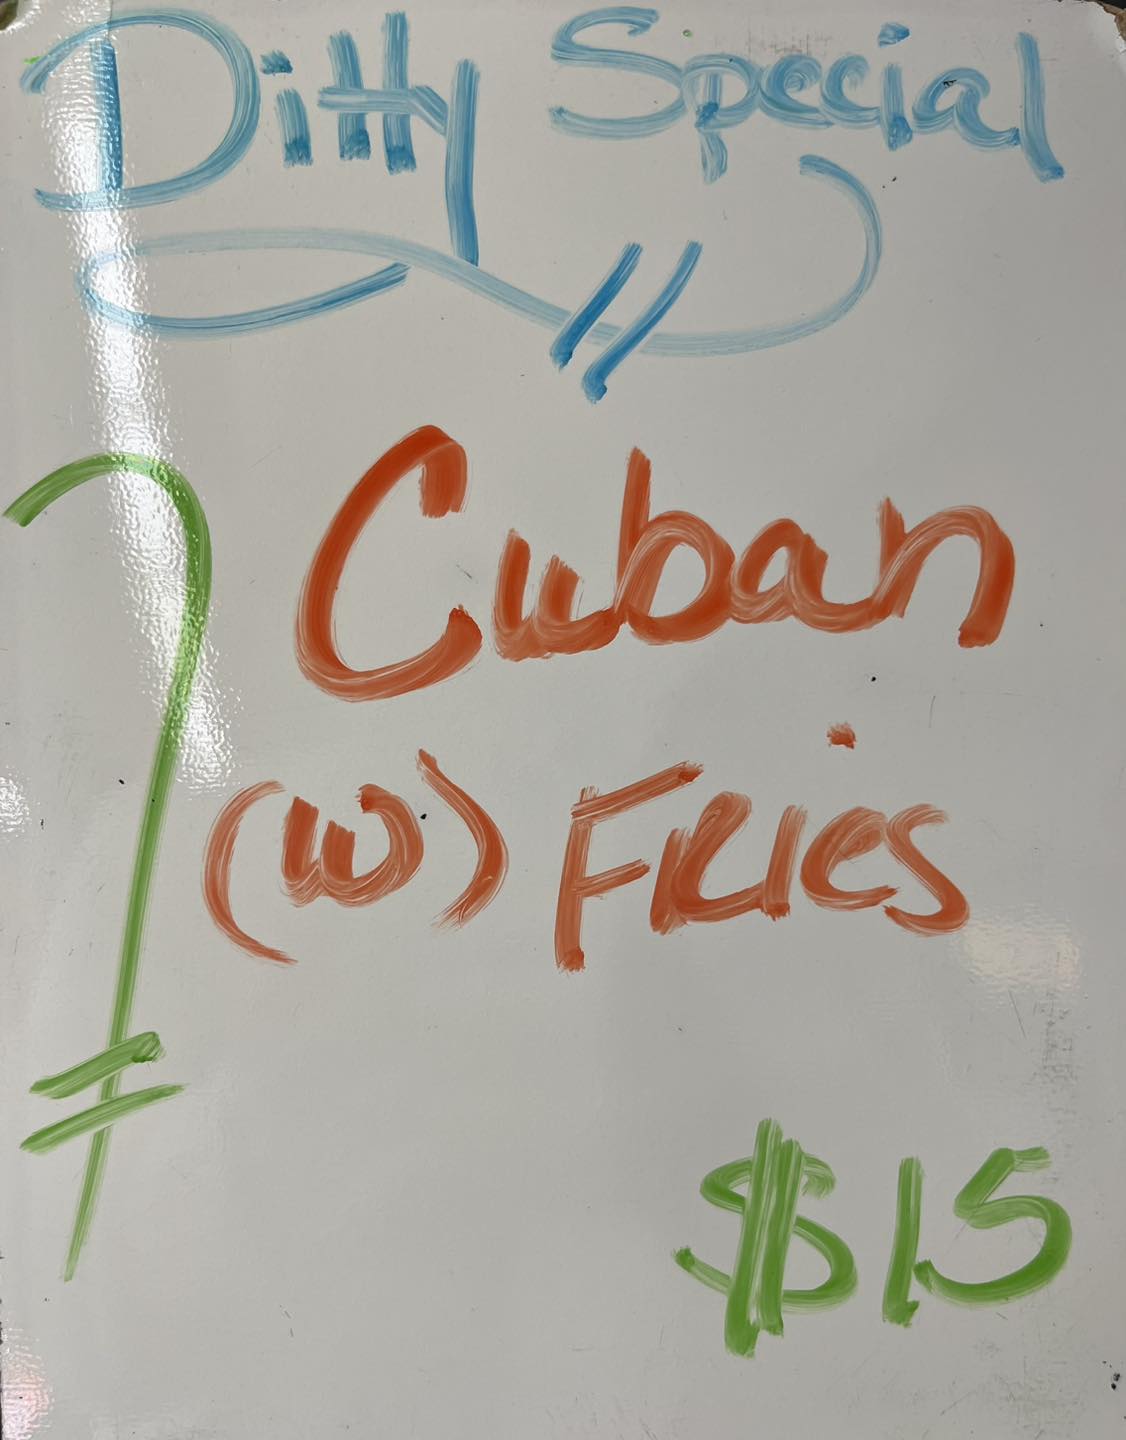 Ditty Special
Cuban
(w) Fries
$15